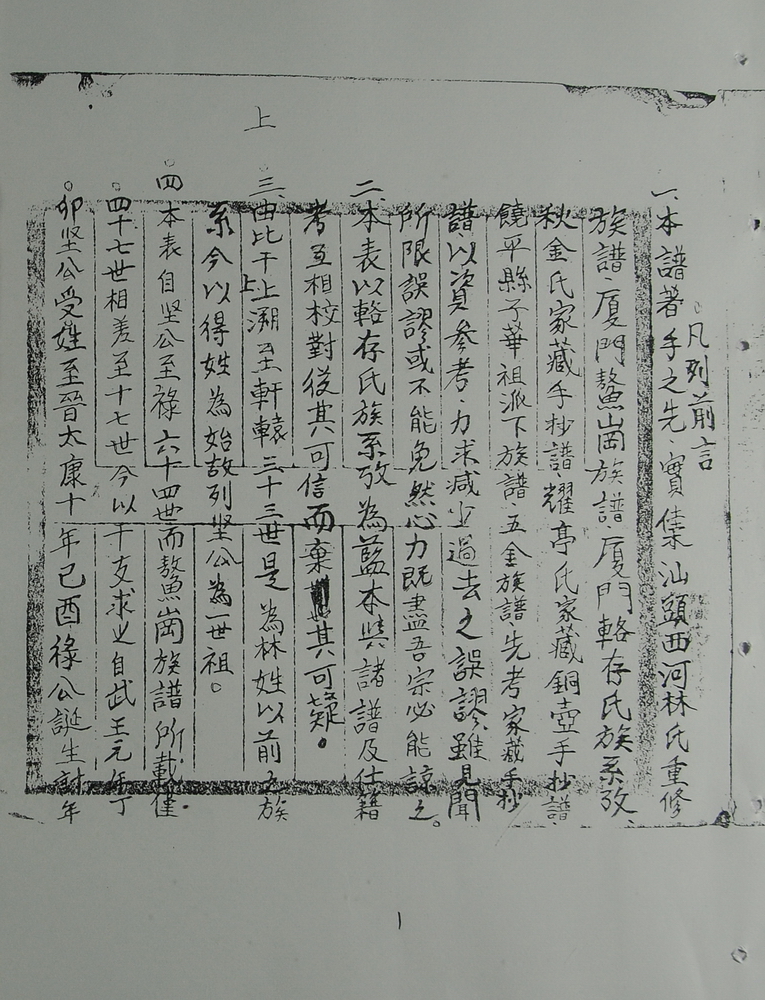 上
凡列前言
一、本譜著手之先、實傃汕頭西河林氏重修
族譜、厦門鰲崗族譜、厦門輅存氏族系攷、
秋金氏家藏手抄譜、耀亭氏家藏銅壺手抄譜、
饒平縣子華祖派下族譜、五全族譜、先考家藏手抄
譜以資參考、力求減少過去之誤謬雖見聞
所限誤謬或不能免然心力既盡吾宗必能諒之。
二、本表以輅存氏族系攷為藍本與諸譜及仕籍
考互相校對從其可信而棄其可疑。
三、由比干上溯至軒轅三十三世是為林姓以前之族
系今以得姓為始故列堅公為一世祖。
四、本表自坚公至祿六十四世而鰲崗族譜所載僅
四十七世相差至十七世今以干支求之自武王元年丁
卯坚公受姓至晉太康十年己酉祿公誕生計年
1